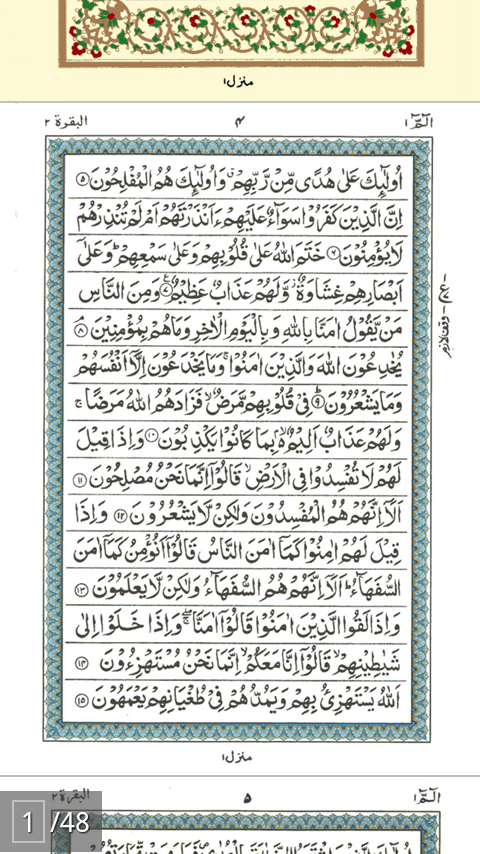 منزل۱
الٓمّٓ ۱
۴
البقرة ۲
اُولٰٓئِكَ عَلٰى هُدًى مِّنْ رَّبِّهِمْ ۙ وَاُولٰٓئِكَ هُمُ الْمُفْلِحُوْنَ ۵
اِنَّ الَّذِيْنَ كَفَرُوْا سَوَآءٌ عَلَيْهِمْ ءَاَنْذَرْتَهُمْ اَمْ لَمْ تُنْذِرْهُمْ
لَا يُؤْمِنُوْنَ ۶ خَتَمَ اللّٰهُ عَلٰى قُلُوْبِهِمْ وَعَلٰى سَمْعِهِمْ ؕ وَعَلٰٓى
اَبْصَارِهِمْ غِشَاوَةٌ ۫ وَّلَهُمْ عَذَابٌ عَظِيْمٌ ۷ ع وَمِنَ النَّاسِ
مَنْ يَّقُوْلُ اٰمَنَّا بِاللّٰهِ وَبِالْيَوْمِ الْاٰخِرِ وَمَا هُمْ بِمُؤْمِنِيْنَ ۘ ۸
يُخٰدِعُوْنَ اللّٰهَ وَالَّذِيْنَ اٰمَنُوْا ۚ وَمَا يَخْدَعُوْنَ اِلَّآ اَنْفُسَهُمْ
وَمَا يَشْعُرُوْنَ ؕ ۹ فِىْ قُلُوْبِهِمْ مَّرَضٌ ۙ فَزَادَهُمُ اللّٰهُ مَرَضًا ۚ
وَلَهُمْ عَذَابٌ اَلِيْمٌۢ ۙ بِمَا كَانُوْا يَكْذِبُوْنَ ۱۰ وَاِذَا قِيْلَ
لَهُمْ لَا تُفْسِدُوْا فِى الْاَرْضِ ۙ قَالُوْٓا اِنَّمَا نَحْنُ مُصْلِحُوْنَ ۱۱
اَلَآ اِنَّهُمْ هُمُ الْمُفْسِدُوْنَ وَلٰكِنْ لَّا يَشْعُرُوْنَ ۱۲ وَاِذَا
قِيْلَ لَهُمْ اٰمِنُوْا كَمَآ اٰمَنَ النَّاسُ قَالُوْٓا اَنُؤْمِنُ كَمَآ اٰمَنَ
السُّفَهَآءُ ؕ اَلَآ اِنَّهُمْ هُمُ السُّفَهَآءُ وَلٰكِنْ لَّا يَعْلَمُوْنَ ۱۳
وَاِذَا لَقُوا الَّذِيْنَ اٰمَنُوْا قَالُوْٓا اٰمَنَّا ۖۚ وَاِذَا خَلَوْا اِلٰى
شَيٰطِيْنِهِمْ ۙ قَالُوْٓا اِنَّا مَعَكُمْ ۙ اِنَّمَا نَحْنُ مُسْتَهْزِءُوْنَ ۱۴
اَللّٰهُ يَسْتَهْزِئُ بِهِمْ وَيَمُدُّهُمْ فِىْ طُغْيَانِهِمْ يَعْمَهُوْنَ ۱۵
وقف لازم
منزل۱
الٓمّٓ ۱
۵
البقرة ۲
1 /48